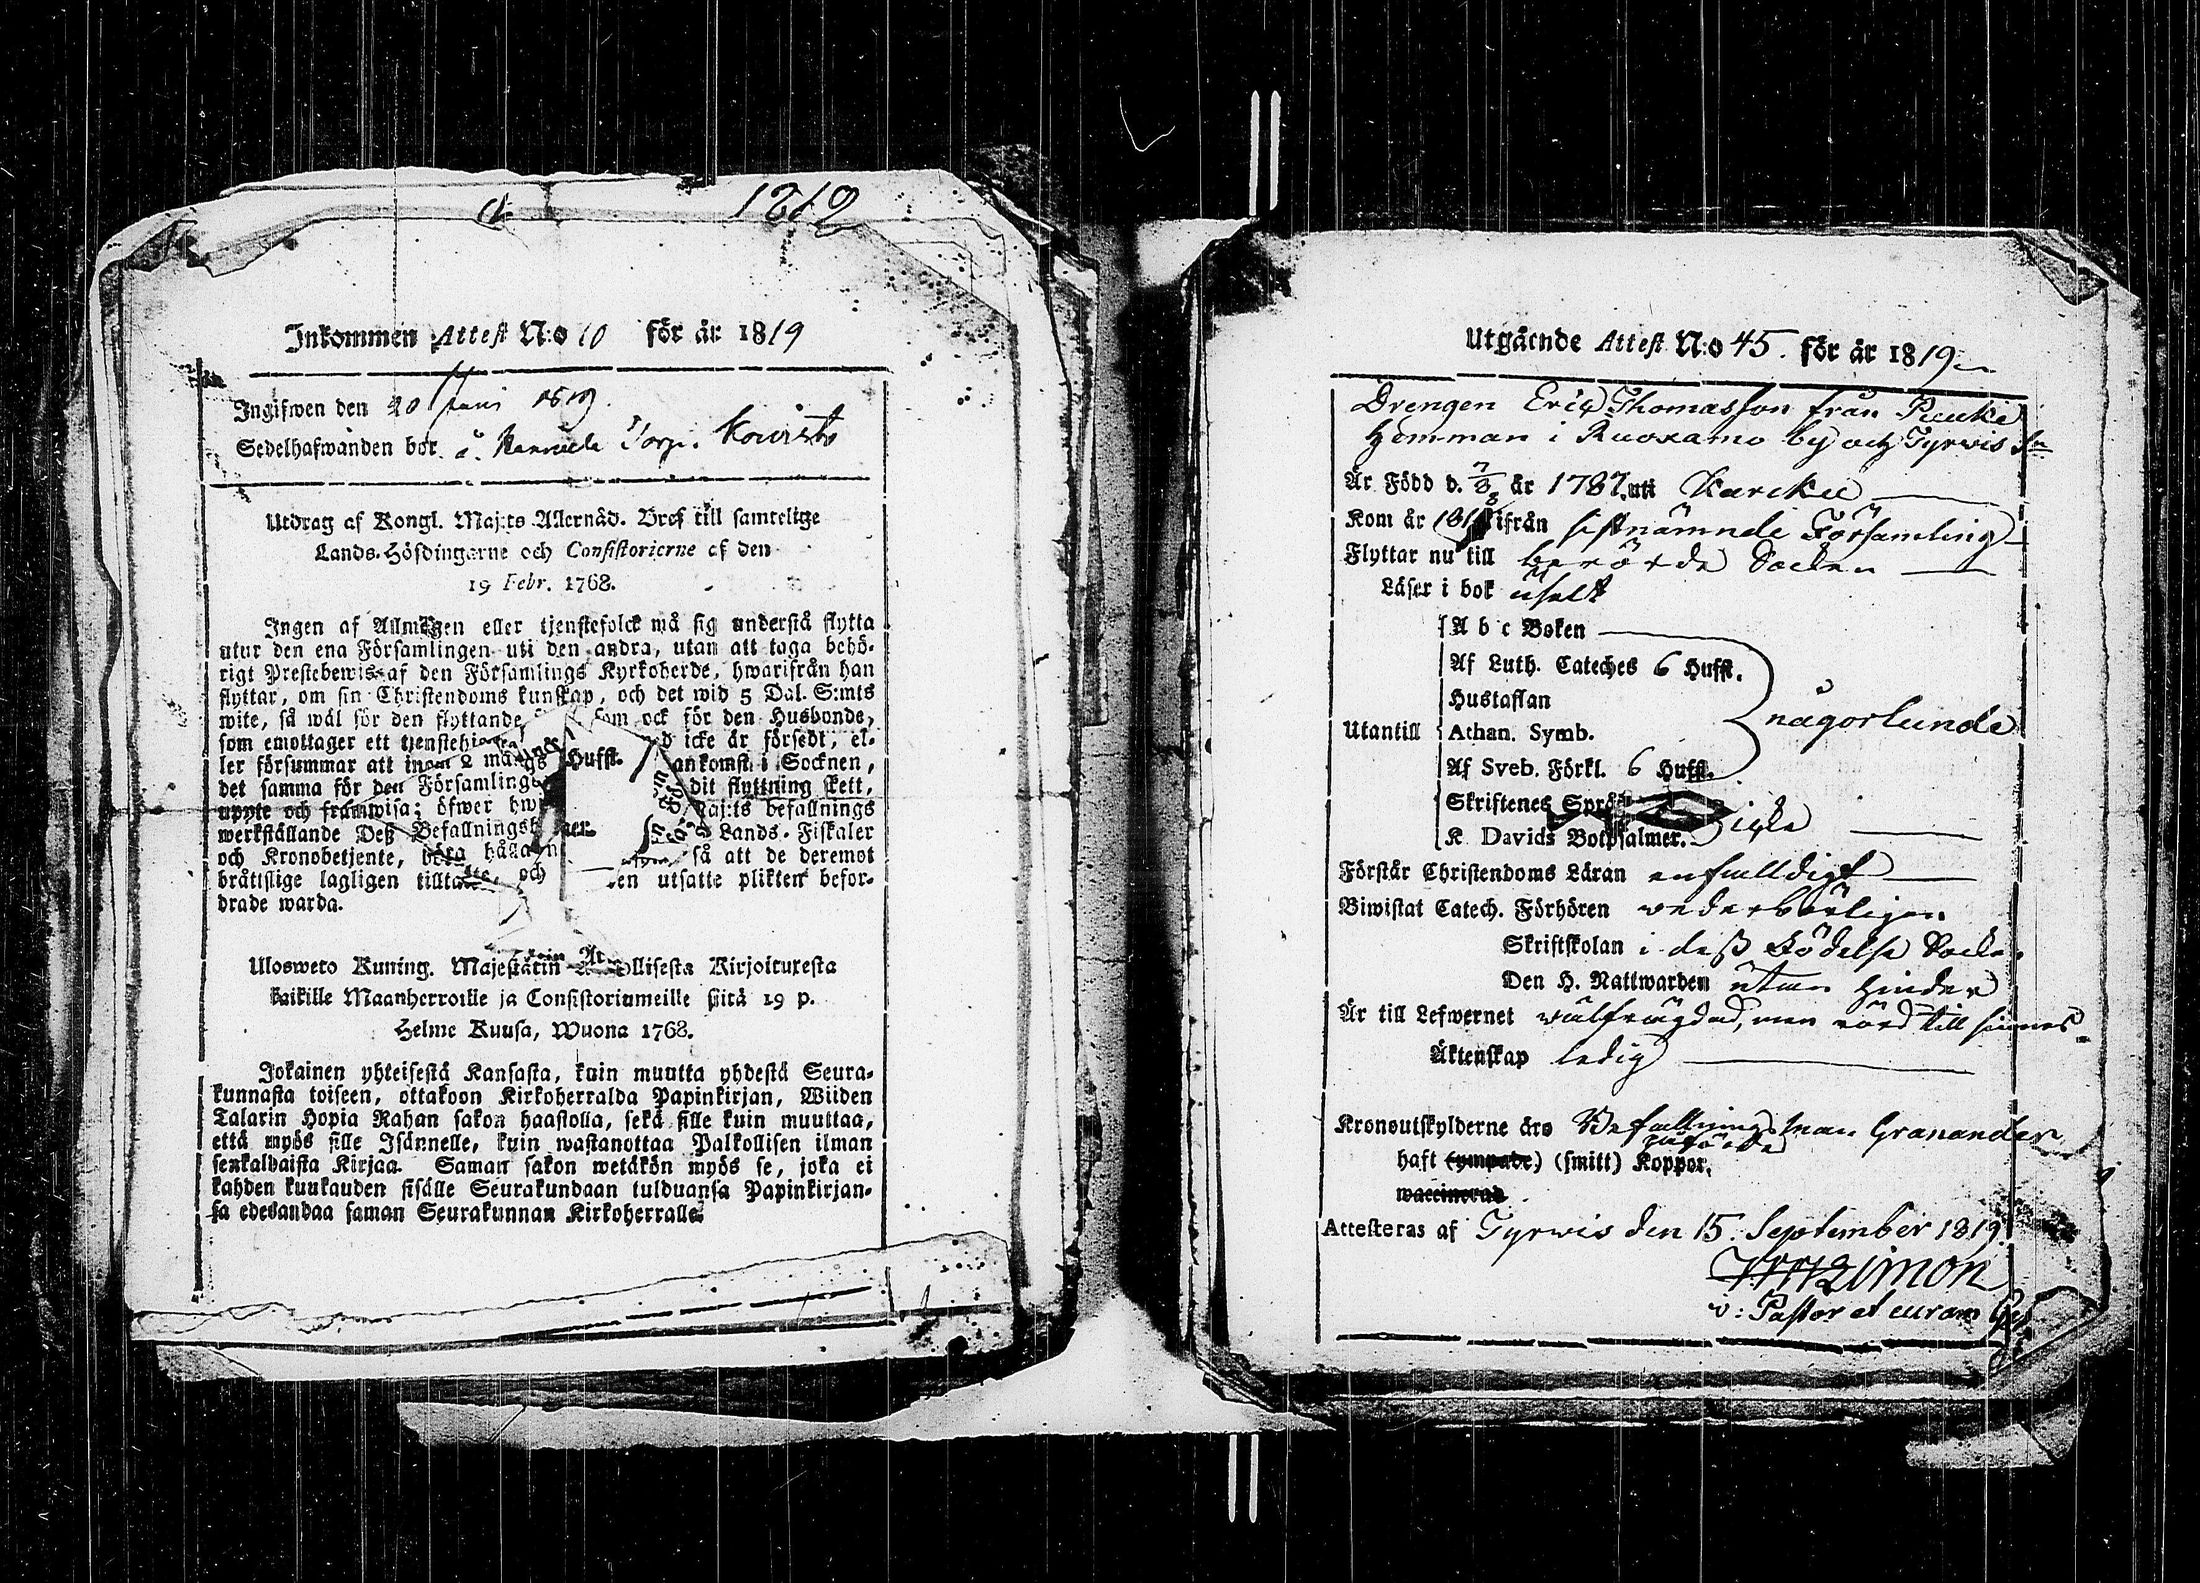 1819
Inkommen Attest N:o 10 för år 1819
Ingifwen den 20 Juni 1819.
Sedelhafwanden bor å Torp. Kowisto
Utdrag af Kongl. Maj:ts Allernåd. Bref till samtelige
Lands-Höfdingarne och Consistorierne af den
19 Febr. 1768.
Ingen af Allmogen eller tjenstefolck må sig understå flytta
utur den ena Församlingen uti den andra, utan att taga behö-
rigt Prestebewis af den Församlings Kyrkoherde, hwarifrån han
flyttar, om sin Christendoms kunskap, och det wid 5 Dal. S:mts
wite, så wäl för den flyttande som ock för den Husbonde,
som emottager ett icke är försedt, el-
ler försummar att inom 2 månads Hufst. ankomst i Socknen,
det samma för den Församling dit flyttning skett,
uppte och framwisa; öfwer Maj:ts befallnings
werkställande Deß Befallnings Lands-Fiskaler
och Kronobetjente, böra hålla så att de deremot
bråttslige lagligen och utsatte plikten befor-
drade warda.
Ulosweto Kuning. Majestätin Kirjoituxesta
kaikille Maanherroille ja Consistoriumeille siitä 19 p.
Helme Kuusa, Wuona 1768.
Jokainen yhteisestä Kansasta, kuin muutta yhdestä Seura-
kunnasta toiseen, ottakoon Kirkoherralda Papinkirjan, Wiiden
Talarin Hopia Rahan sakon haastolla, sekä sille kuin muuttaa,
että myös sille Isännelle, kuin wastanottaa Palkollisen ilman
senkaldaista Kirjaa. Saman sakon wetäkön myös se, joka ei
kahden kuukauden sisälle Seurakundaan tulduansa Papinkirjan-
sa edesandaa saman Seurakunnan Kirkoherralle.
Utgående Attest N:o 45. för år 1819
Drengen Eric Thomasson från Puuki
Hemman i Ruoxamo by och Tyrwis Sn
Är Född d. 7/8 år 1787. uti Karcku
Kom år ifrån sistnämnde Församling
Flyttar nu till berörde Socken
Läser i bok uselt
A b c Boken
Af Luth. Cateches 6 Hufst.
Hustaflan
Utantill Athan. Symb. någorlunda
Af Sveb. Förkl. 6 Hufst.
Skriftenes Språk
K Davids Botpsalmer. icke
Förstår Christendoms Läran enfaldigt
Biwistat Catech. Förhören wederbörligen
Skriftskolan i deß Födelse Socken
Den H. Nattwarden utan hinder
Är till Lefwernet wälfrägdad, men rörd till sinnes
Äktenskap ledig
Kronoutskylderne äro Befallningsman Granander
påförde
haft (ympade) (smitt) Koppor.
waccinerad
Attesteras af Tyrwis den 15. September 1819.
v: Pastor et curam